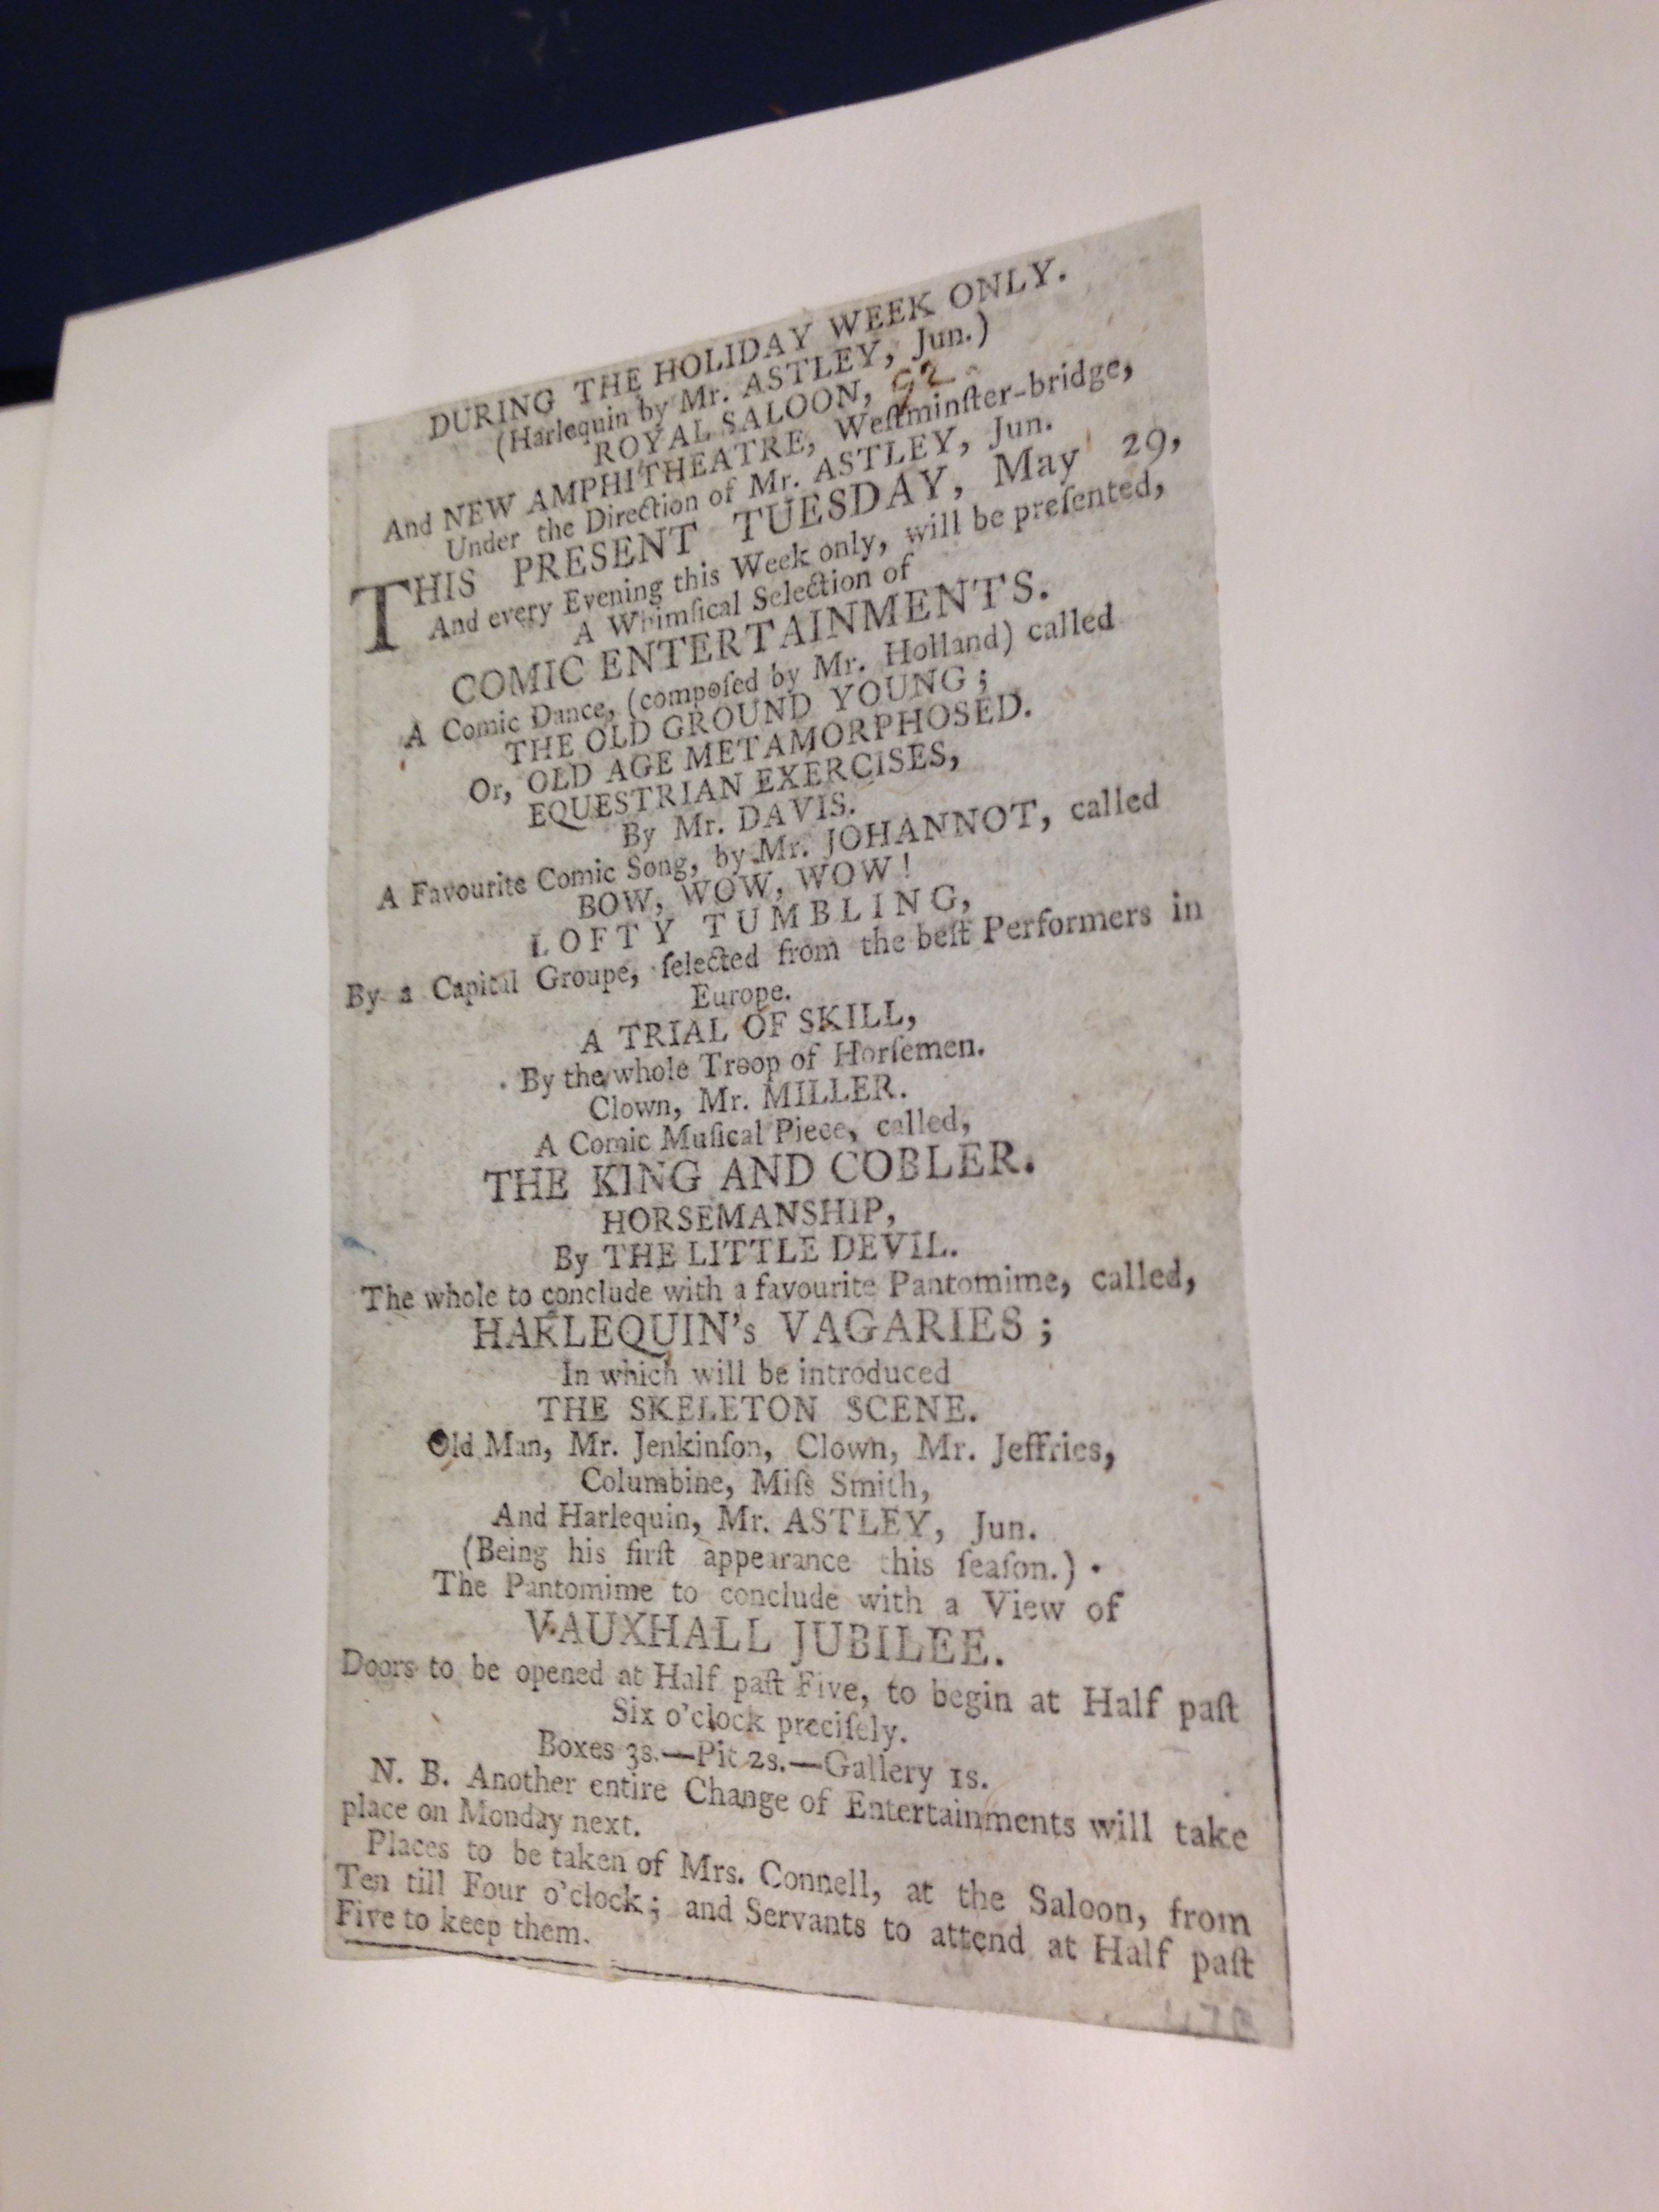 DURING THE HOLIDAY WEEK ONLY.
(Harlequin by Mr. ASTLEY, Jun.)
ROYAL SALOON, 92
And NEW AMPHITHEATRE, Weſtminſter-bridge,
Under the Direction of Mr. ASTLEY, Jun.
THIS PRESENT TUESDAY, May 29,
And every Evening this Week only, will be preſented,
A Whimſical Selection of
COMIC ENTERTAINMENTS.
A Comic Dance, (compoſed by Mr. Holland) called
THE OLD GROUND YOUNG;
Or, OLD AGE METAMORPHOSED.
EQUESTRIAN EXERCISES,
By Mr. DAVIS.
A Favourite Comic Song, by Mr. JOHANNOT, called
BOW, WOW, WOW!
LOFTY TUMBLING,
By a Capital Groupe, ſelected from the beſt Performers in
Europe.
A TRIAL OF SKILL,
By the whole Troop of Horſemen.
Clown, Mr. MILLER.
A Comic Muſical Piece, called,
THE KING AND COBLER.
HORSEMANSHIP,
By THE LITTLE DEVIL.
The whole to conclude with a favourite Pantomime, called,
HARLEQUIN's VAGARIES;
In which will be introduced
THE SKELETON SCENE.
Old Man, Mr. Jenkinſon, Clown, Mr. Jeffries,
Columbine, Miſs Smith,
And Harlequin, Mr. ASTLEY, Jun.
(Being his firſt appearance this ſeaſon.)
The Pantomime to conclude with a View of
VAUXHALL JUBILEE.
Doors to be opened at Half paſt Five, to begin at Half paſt
Six o'clock preciſely.
Boxes 3s.—Pit 2s.—Gallery 1s.
N. B. Another entire Change of Entertainments will take
place on Monday next.
Places to be taken of Mrs. Connell, at the Saloon, from
Ten till Four o'clock; and Servants to attend at Half paſt
Five to keep them.